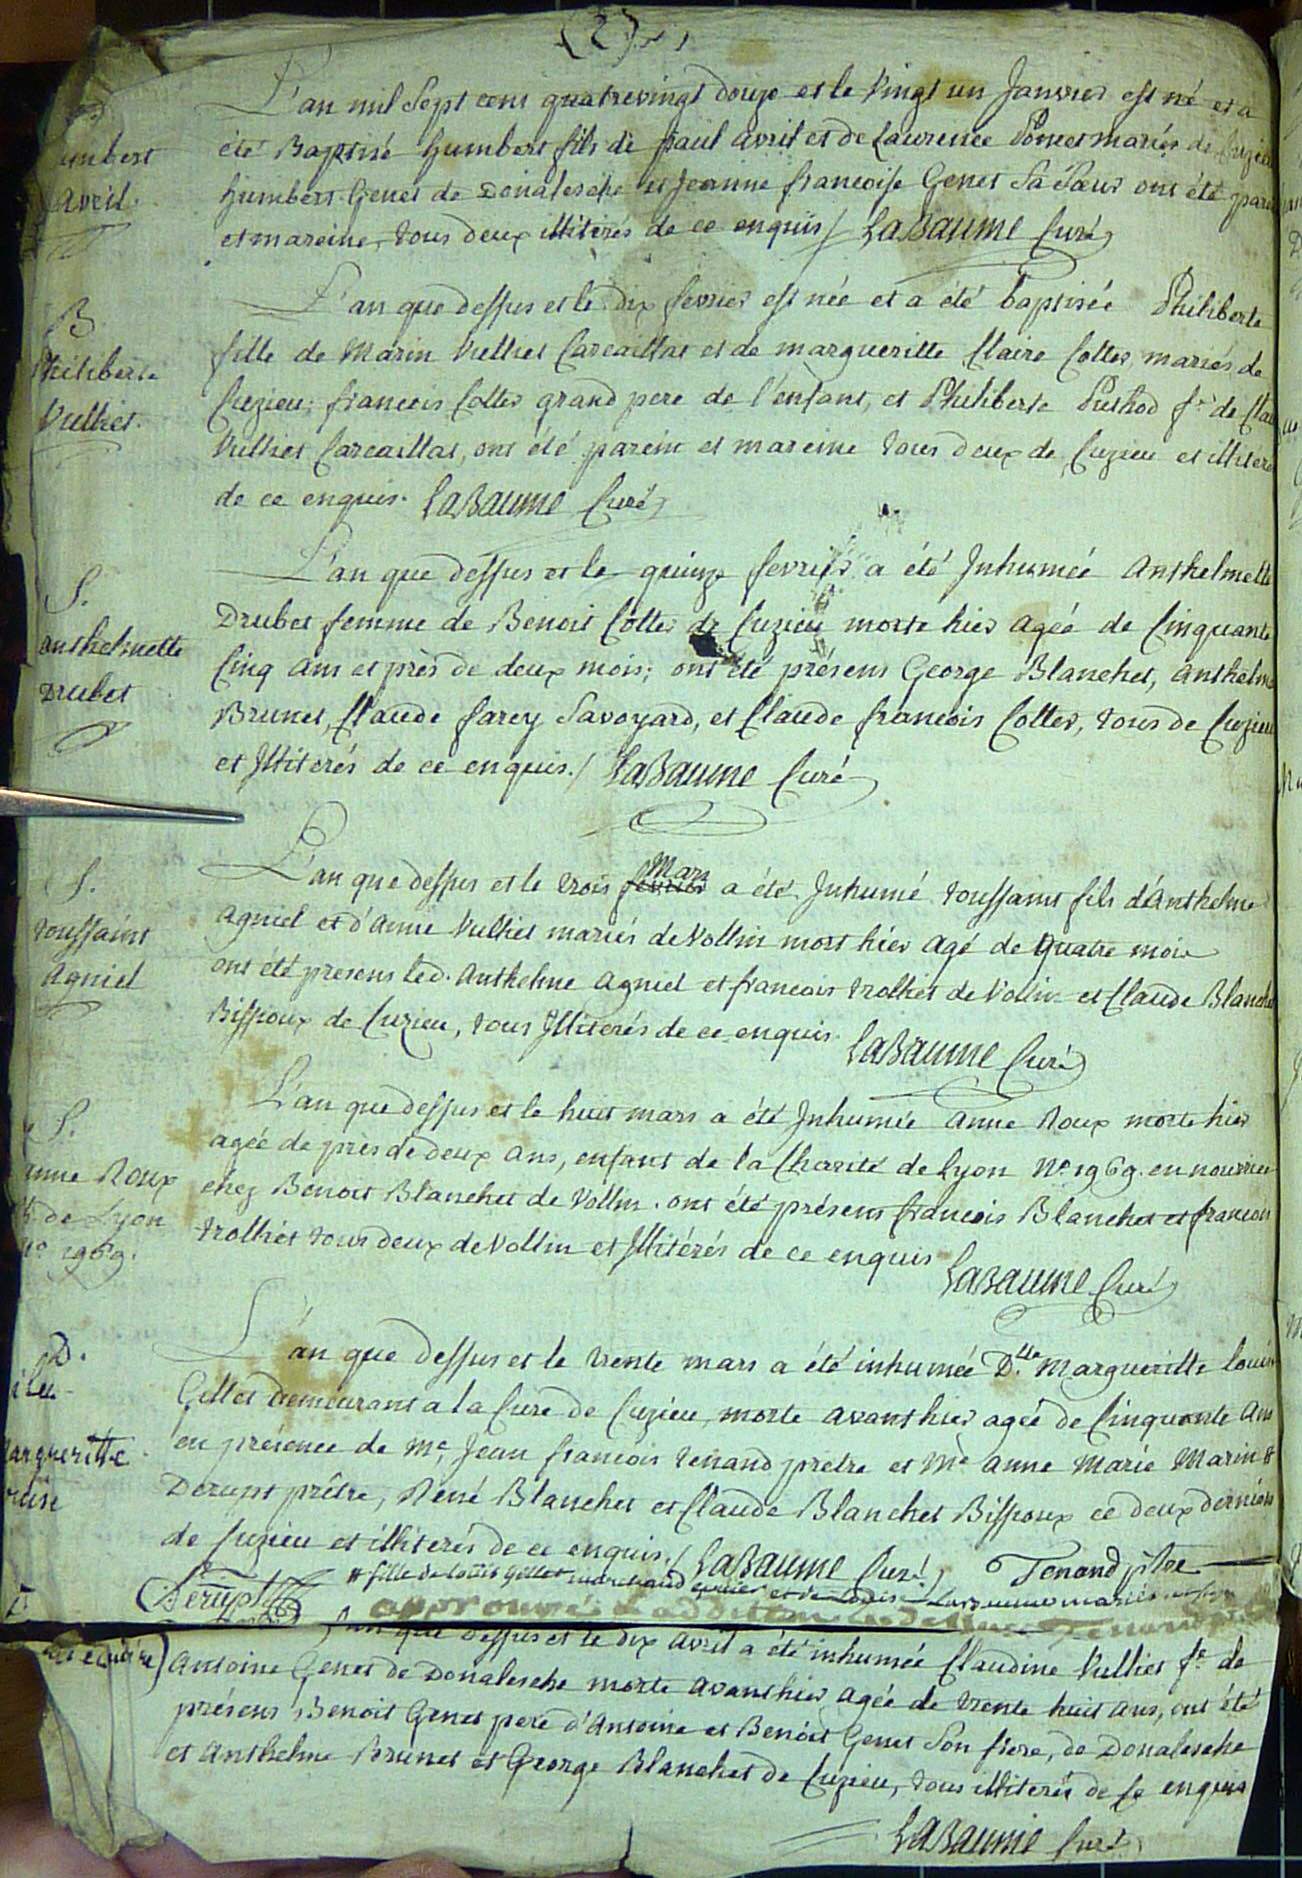 (2)
L'an mil Sept cent quatrevingt douze et le vingt un Janvier est né et a
été Baptisé humbert fils de paul avril et de Laurence Poncet mariés de Cuzieu
humbert Genet de Donalesche et Jeanne francoise Genet Sa Sœur ont été parein
et mareine, tous deux illiterés de ce enquis / LaBaume Curé
umbert
avril.
L'an que dessus et le dix fevrier est née et a été baptisée Philiberte
fille de Marin Vulliet Carcaillat et de margueritte Claire Collet mariés de
Cuzieu; francois Collet grand pere de l'enfant, et Philiberte Puthod fe de Claude
Vulliet Carcaillat, ont été parein et mareine tous deux de Cuzieu et illiterés
de ce enquis. LaBaume Curé
B.
Philiberte
Vulliet.
L'an que dessus et le quinze fevrier a été Inhumée anthelmette
Drubet femme de Benoit Collet de Cuzieu morte hier agée de Cinquante
Cinq ans et près de deux mois; ont été présens George Blanchet, anthelme
Brunet, Claude farcy Savoyard, et Claude francois Collet, tous de Cuzieu
et Illiterés de ce enquis./ LaBaume Curé
S.
anthelmette
Drubet
L'an que dessus et le trois fevrier Mars a été Inhumé toussaint fils d'anthelme
agniel et d'anne Vulliet mariés de Vollin mort hier agé de quatre mois
ont été presens led. anthelme agniel et francois trolliet de Vollin et Claude Blanchet
Bissoux de Cuzieu, tous Illiterés de ce enquis. LaBaume Curé
S.
toussaint
agniel
L'an que dessus et le huit mars a été Inhumée anne Roux morte hier
agée de près de deux ans, enfant de la Charité de Lyon No. 1969. en nourrice
chez Benoit Blanchet de Vollin. ont été présens francois Blanchet et francois
trolliet tous deux de Vollin et Illitérés de ce enquis LaBaume Curé
S.
anne Roux
de Lyon
No 1969.
L'an que dessus et le trente mars a été inhumée Dlle Margueritte louise
Gillet demeurant a la Cure de Cuzieu, morte avanthier agée de Cinquante ans
en présence de Me Jean francois tenand prêtre et Me anne Marie Marin #
Derupt prêtre, René Blanchet et Claude Blanchet Bissoux ce deux derniers
de Cuzieu et illiterés de ce enquis./ LaBaume Curé Tenand ptre
Derupt ptre # fille de Louis Gillet marchand
approuvée l'addition Tenand
Margueritte
L'an que dessus et le dix avril a été inhumée Claudine Vulliet fe de
antoine Genet de Donalesche morte avanthier agée de trente huit ans, ont été
présens Benoit Genet pere d'antoine et Benoit Genet Son frere, de Donalesche
et anthelme Brunet et George Blanchet de Cuzieu, tous illiterés de ce enquis
LaBaume Curé